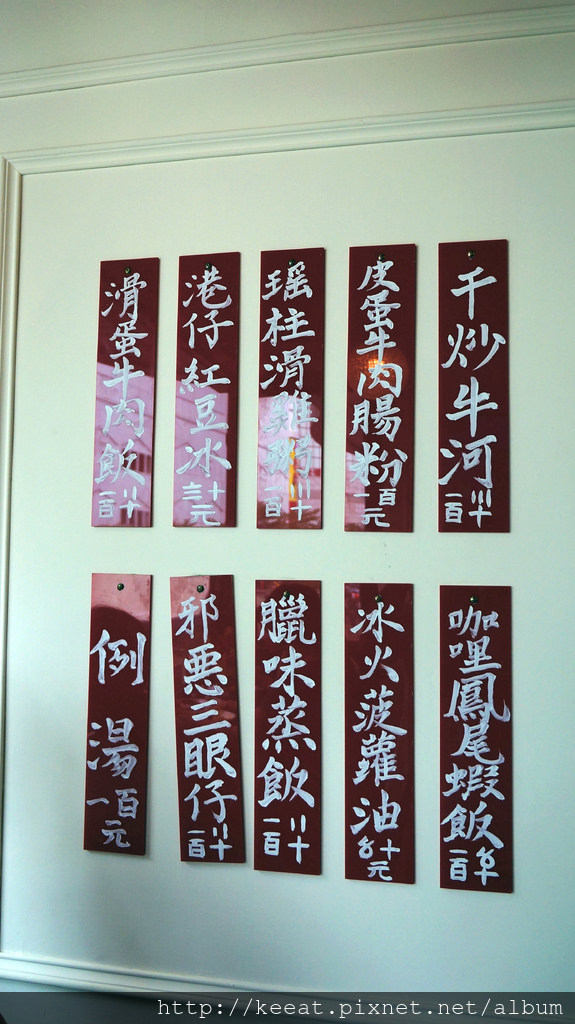 干炒牛河
一百〣十
皮蛋牛肉腸粉
一百元
瑶柱滑雞粥
一百〢十
港仔紅豆冰
十元
滑蛋牛肉飯
一百〢十
咖哩鳳尾蝦飯
一百〥十
冰火菠蘿油
〥十元
臘味蒸飯
一百〢十
邪惡三眼仔
一百〢十
例湯
一百元
http://keeat.pixnet.net/album